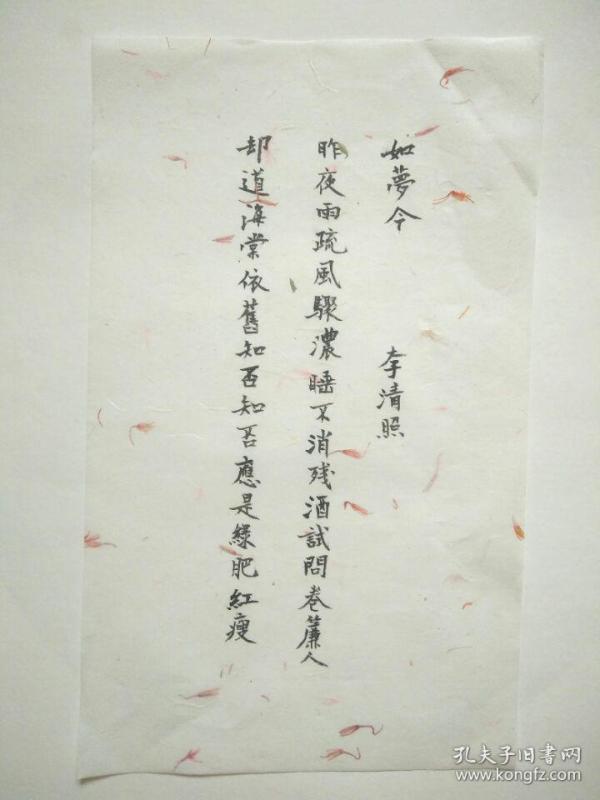 如夢令 李清照
昨夜雨疏風驟濃睡不消残酒試問卷簾人
却道海棠依舊知否知否應是綠肥紅瘦
孔夫子旧書网
www.kongfz.com